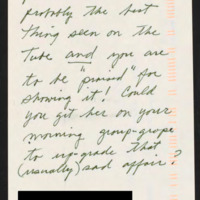 probably the best
thing seen on the
Tube and you are
to be "praised" for
showing it! Could
you get her on your
morning group-grope
to up-grade that
(usually) sad affair?